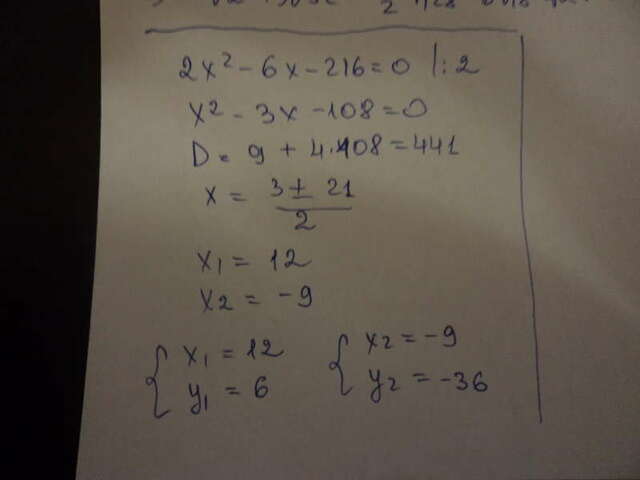 2x² - 6x - 216 = 0 |: 2
x² - 3x - 108 = 0
D = 9 + 4·108 = 441
x = (3 ± 21)/2
x₁ = 12
x₂ = -9
{ x₁ = 12 { x₂ = -9
y₁ = 6 y₂ = -36